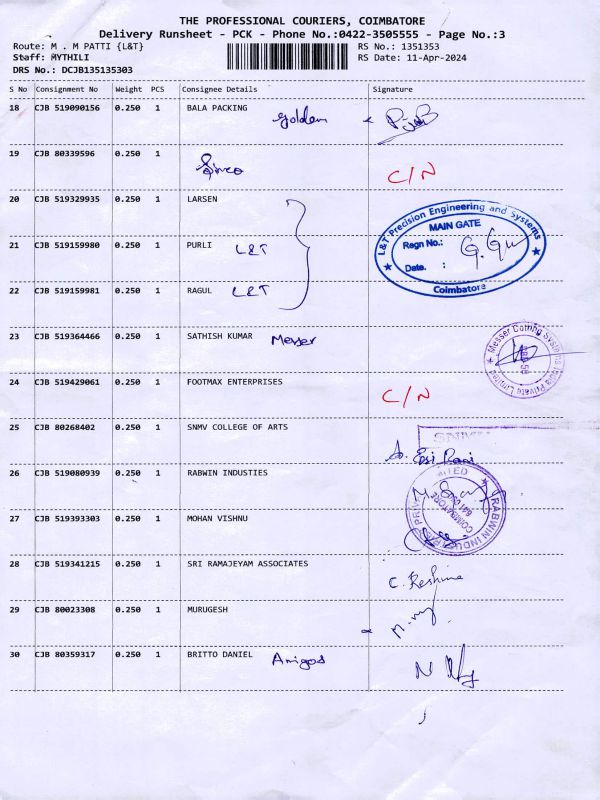 THE PROFESSIONAL COURIERS, COIMBATORE
Delivery Runsheet - PCK - Phone No.:0422-3505555 - Page No.:3
Route: M . M PATTI {L&T} RS No.: 1351353
Staff: MYTHILI RS Date: 11-Apr-2024
DRS No.: DCJB135135303
S No Consignment No Weight PCS Consignee Details Signature
18 CJB 519090156 0.250 1 BALA PACKING
Golden
19 CJB 80339596 0.250 1
C/N
20 CJB 519329935 0.250 1 LARSEN
L&T Precision Engineering and Systems
MAIN GATE
Regn No.:
Date. :
Coimbatore
21 CJB 519159980 0.250 1 PURLI L&T
22 CJB 519159981 0.250 1 RAGUL L&T
23 CJB 519364466 0.250 1 SATHISH KUMAR Messer
Messer Cutting Systems India Private Limited
24 CJB 519429061 0.250 1 FOOTMAX ENTERPRISES
C/N
25 CJB 80268402 0.250 1 SNMV COLLEGE OF ARTS
26 CJB 519080939 0.250 1 RABWIN INDUSTIES
RABWIN INDU
COIMBATORE
27 CJB 519393303 0.250 1 MOHAN VISHNU
28 CJB 519341215 0.250 1 SRI RAMAJEYAM ASSOCIATES
C. Reshma
29 CJB 80023308 0.250 1 MURUGESH
30 CJB 80359317 0.250 1 BRITTO DANIEL Amigos